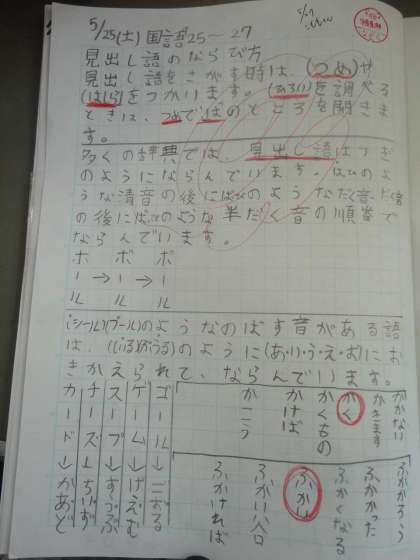 5/25(土)国語25〜27
見出し語のならび方
見出し語をさがす時は、(つめ)や
(はしら)をつかいます。(ひろい)を調べる
ときは、つめではのところを開きま
す。
多くの辞典では、見出し語はつぎ
のようにならんでいます。はひのよ
うな清音の後にばびのようなだく音、だく音
の後にぱぴのような半だく音の順番で
ならんでいます。
ホ ボ ポ
ー→ー→ー
ル ル ル
(シール)(プール)のようなのばす音がある語
は、(しいる)(ぷうる)のように(あ・い・う・え・お)にお
きかえられて、ならんでいます。
かかない
かきます
かく
かくもの
かけば
かこう
ふかかろう
ふかかった
ふかくなる
ふかい
ふかい穴
ふかければ
ゴール→ごおる
ゲーム→げえむ
スープ→すうぷ
チーズ→ちいず
カード→かあど